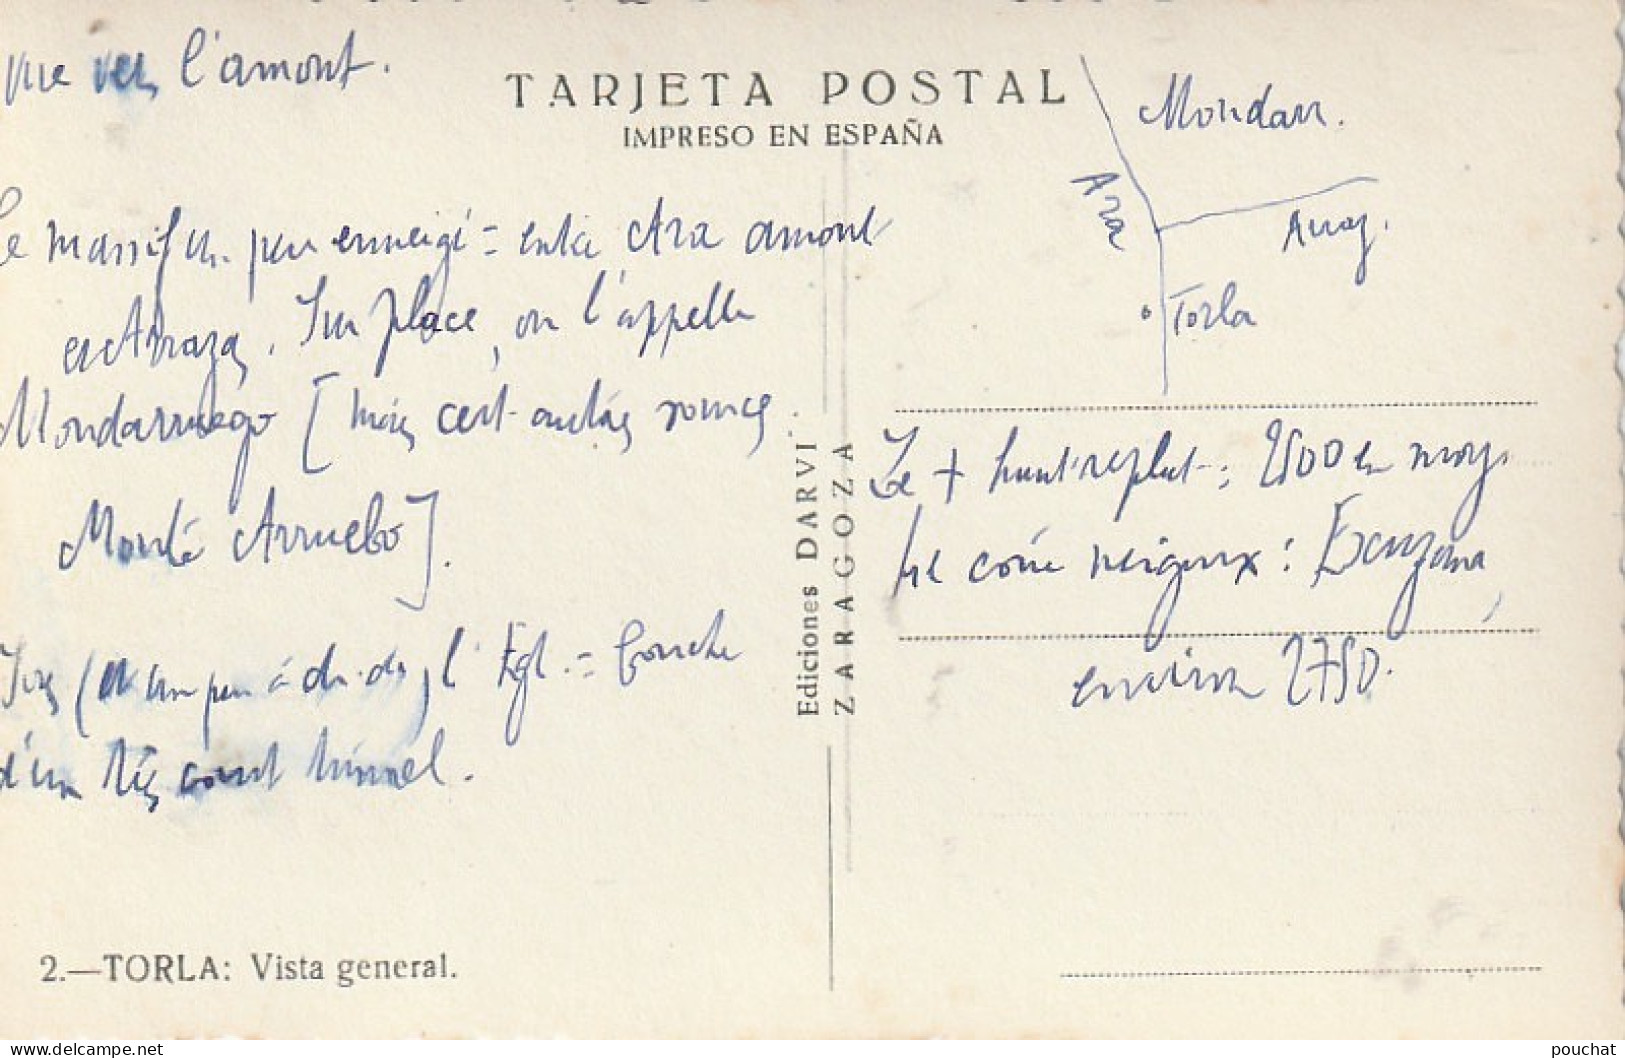 vue vers l'amont.
TARJETA POSTAL
IMPRESO EN ESPAÑA
Mondarr.
Ara
Arraz.
Torla
Le massif un peu enneigé = entre Ara amont
et Arrazas. Sur place, on l'appelle
Mondarruego [mais c'est autres
Monte Arruebo].
(et un peu à dr. de) l'Egl. = bouche
d'un très court tunnel.
Ediciones DARVI
ZARAGOZA
Le + haut replat : 2500 en moy.
Le cône neigeux : Escuzana,
environ 2750.
2.—TORLA: Vista general.
pouchat